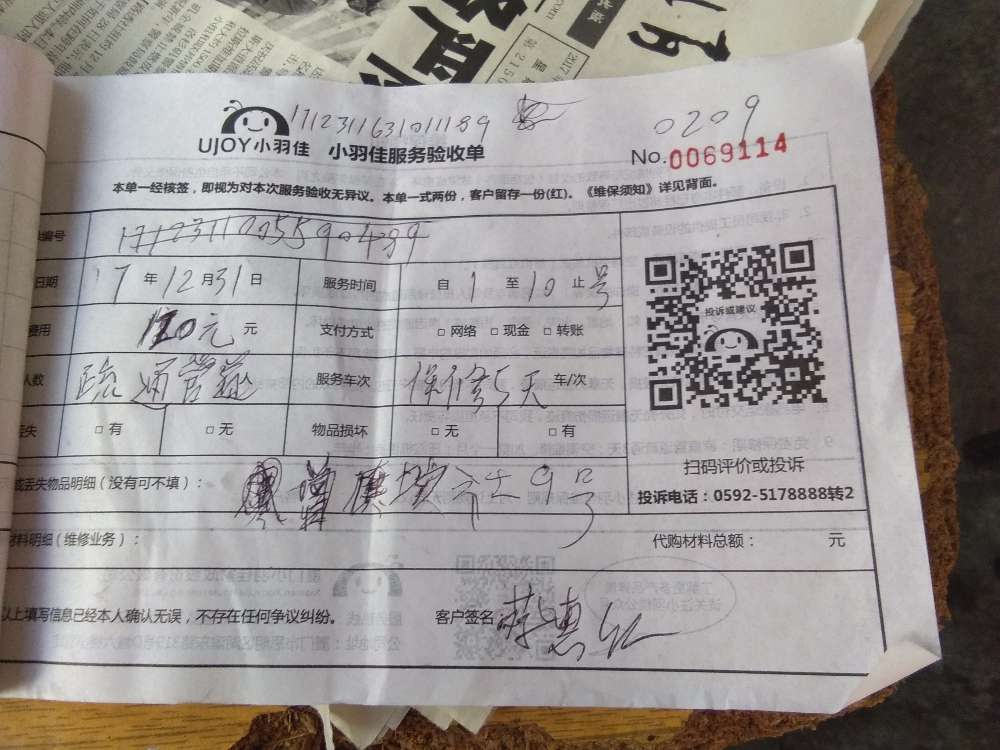 1712311631011189
0209
UJOY小羽佳 小羽佳服务验收单
No.0069114
本单一经核签，即视为对本次服务验收无异议。本单一式两份，客户留存一份(红)。《维保须知》详见背面。
编号
日期 17 年 12 月 31 日 服务时间 自 1 至 10 止 号
费用 120元 元 支付方式 □ 网络 □ 现金 □ 转账
人数 疏通管道 服务车次 保修5天 车/次
丢失 □ 有 □ 无 物品损坏 □ 无 □ 有
投诉或建议
扫码评价或投诉
投诉电话：0592-5178888转2
或丢失物品明细（没有可不填）： 9号
材料明细（维修业务）： 代购材料总额： 元
以上填写信息已经本人确认无误，不存在任何争议纠纷。 客户签名：